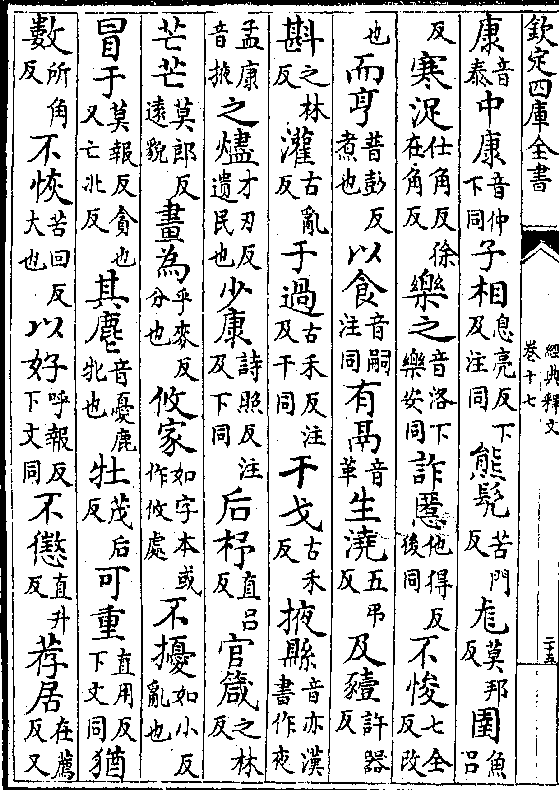 欽定四庫全書
經典釋文
卷十七
二十五
康音泰中康音仲下同子相息亮反下及注同熊髠苦門反尨莫邦反圉魚呂
反寒浞仕角反徐在角反樂之音洛下樂安同詐慝他得反後同不悛七全反改
也而亨普彭反煮也以食音嗣注同有鬲音革生澆五弔反及豷許器反
斟之林反灌古亂反于過古禾反注及下同干戈古禾反掖縣音亦漢書作夜
孟康音掖之燼才刃反遺民也少康詩照反注及下同后杼直呂反官箴之林反
芒芒莫郎反遠貌畫為乎麥反分也攸家如字本或作攸處不擾如小反亂也
冒于莫報反貪也又亡北反其麀音憂鹿牝也牡茂后反可重直用反下文同猶
數所角反不恢苦回反大也以好呼報反下文同不懲直升反荐居在薦反又